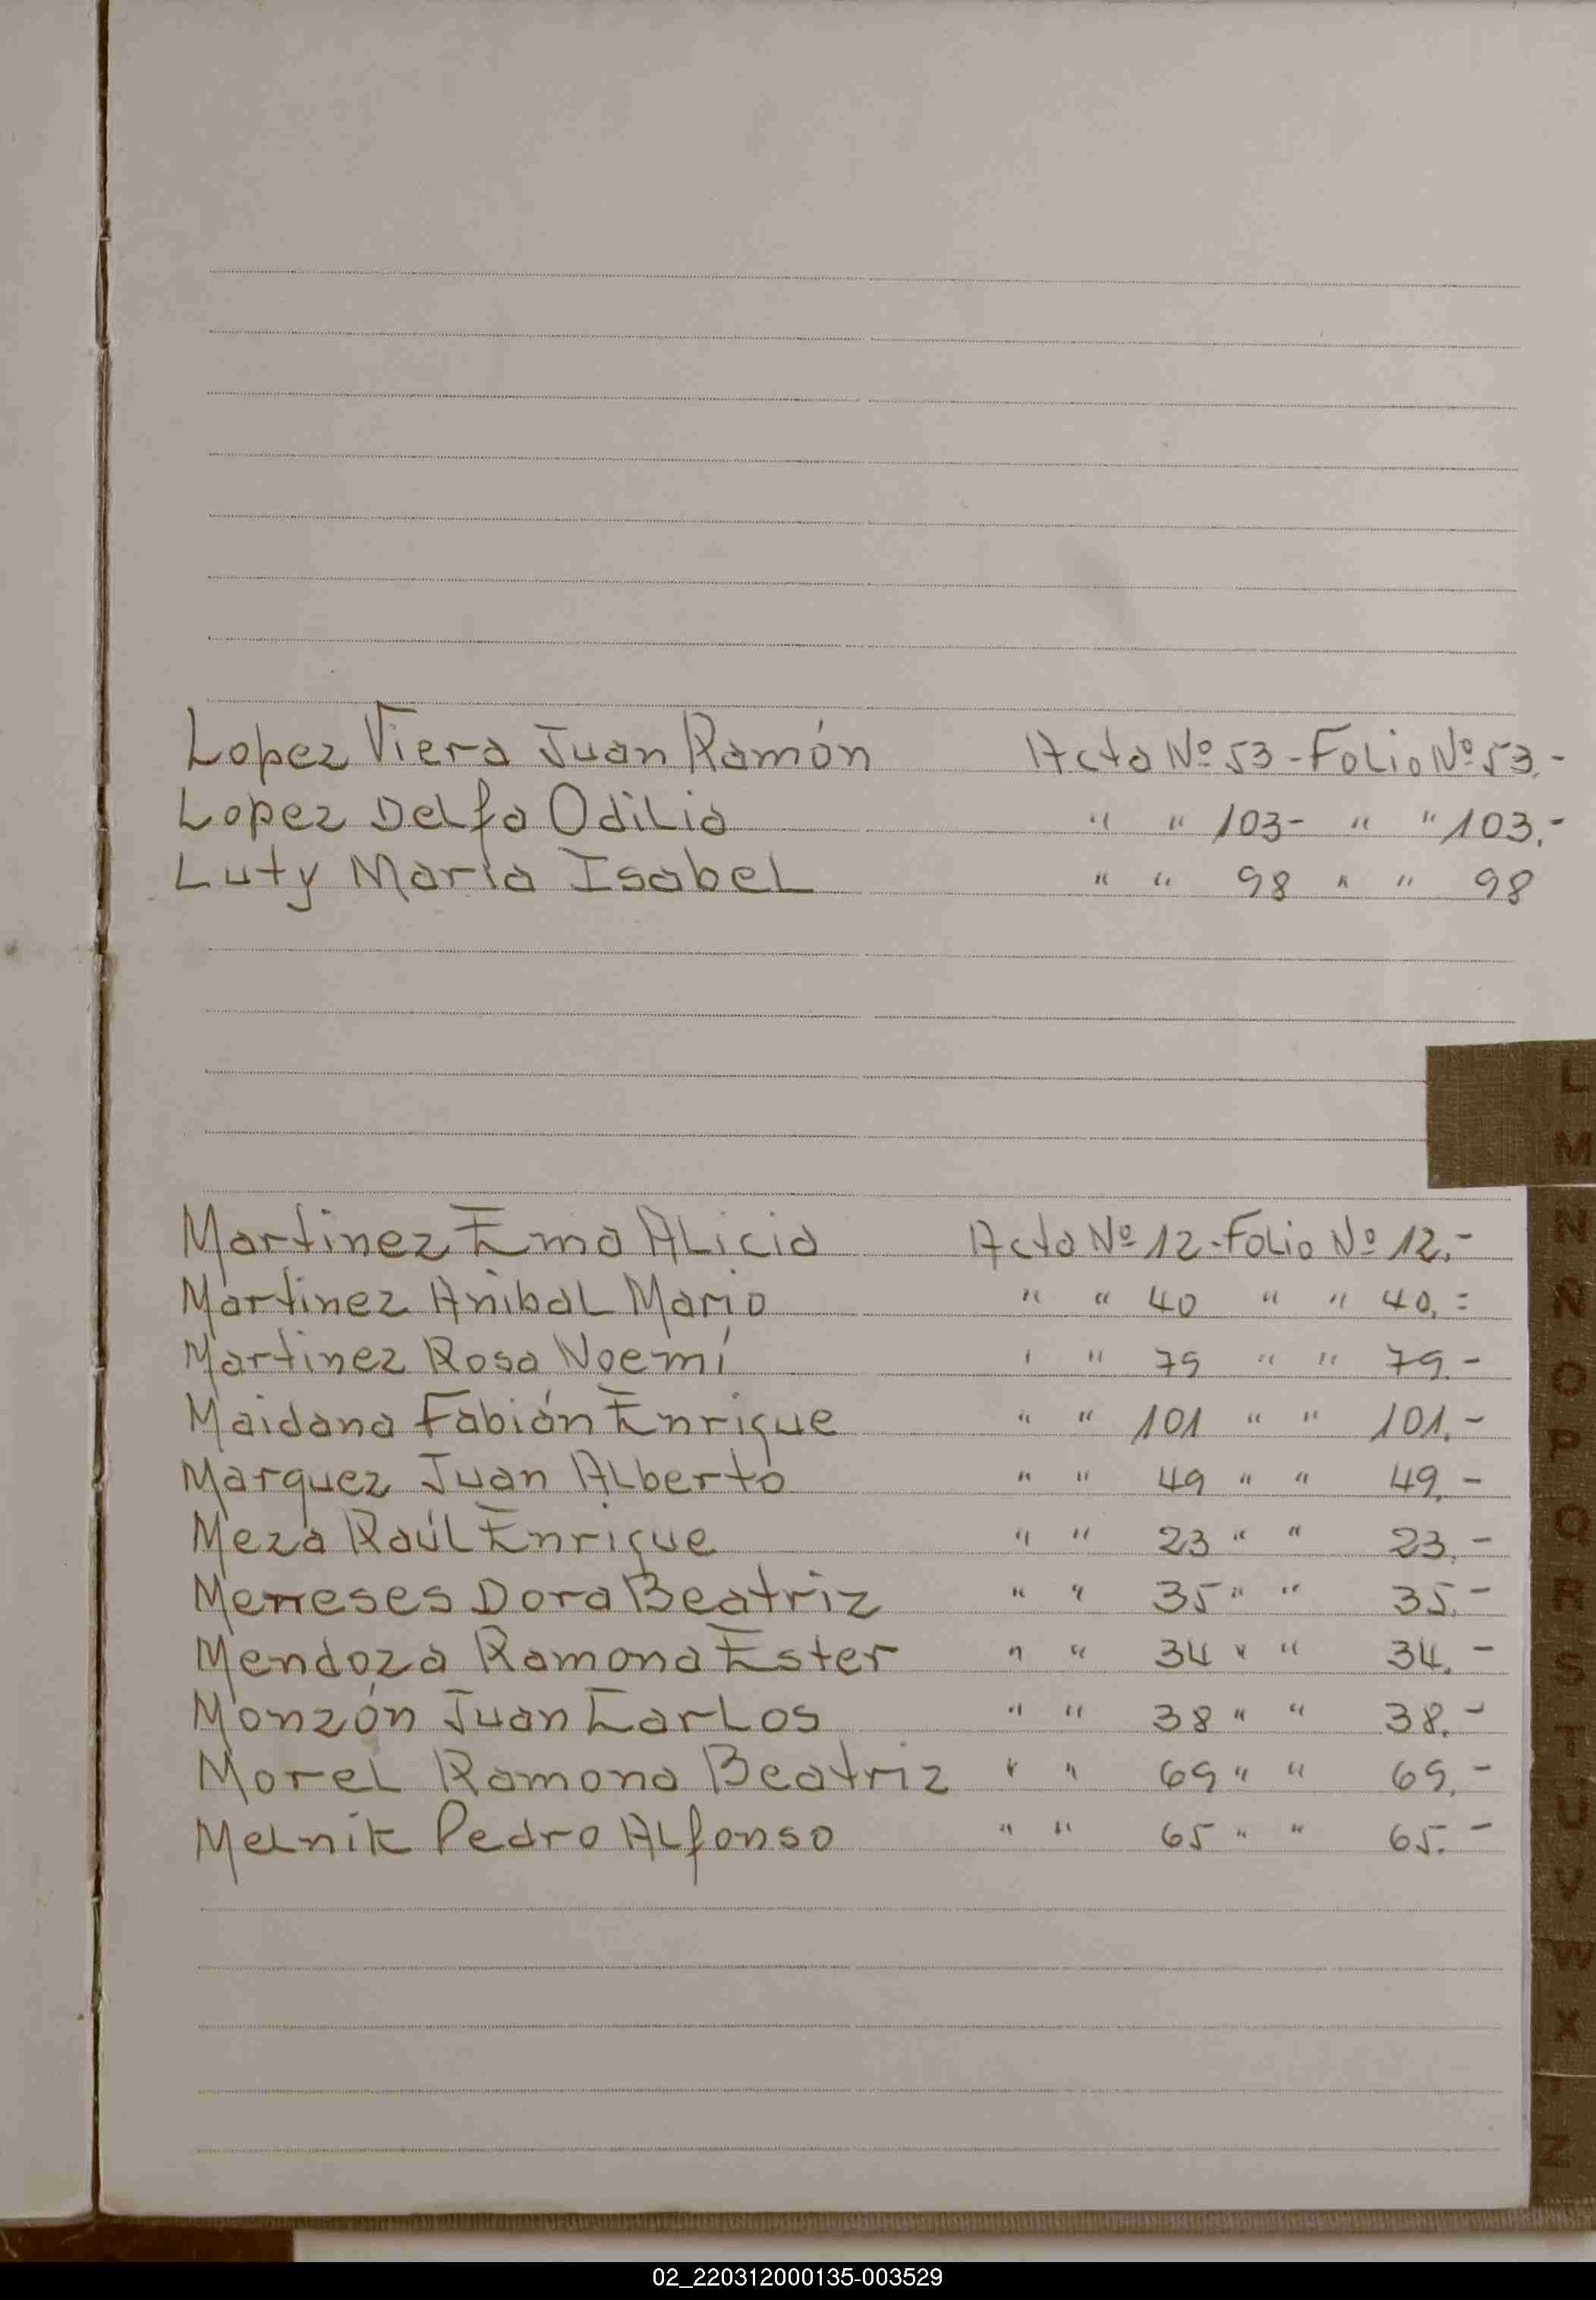 Lopez Viera Juan Ramón Acta Nº 53 - Folio Nº 53.-
Lopez Delfa Odilia " " 103 - " " 103.-
Luty María Isabel " " 98 " " 98
L
M
Martinez Ema Alicia Acta Nº 12 - Folio Nº 12.-
N
Martinez Anibal Mario " " 40 " " 40.=
Ñ
Martinez Rosa Noemí " " 79 " " 79.-
O
Maidana Fabián Enrique " " 101 " " 101.-
P
Marquez Juan Alberto " " 49 " " 49.-
Q
Meza Raúl Enrique " " 23 " " 23.-
R
Meneses Dora Beatriz " " 35 " " 35.-
S
Mendoza Ramona Ester " " 34 " " 34.-
Monzón Juan Carlos " " 38 " " 38.-
T
Morel Ramona Beatriz " " 69 " " 69.-
U
Melnik Pedro Alfonso " " 65 " " 65.-
V
W
X
Z
02_220312000135-003529